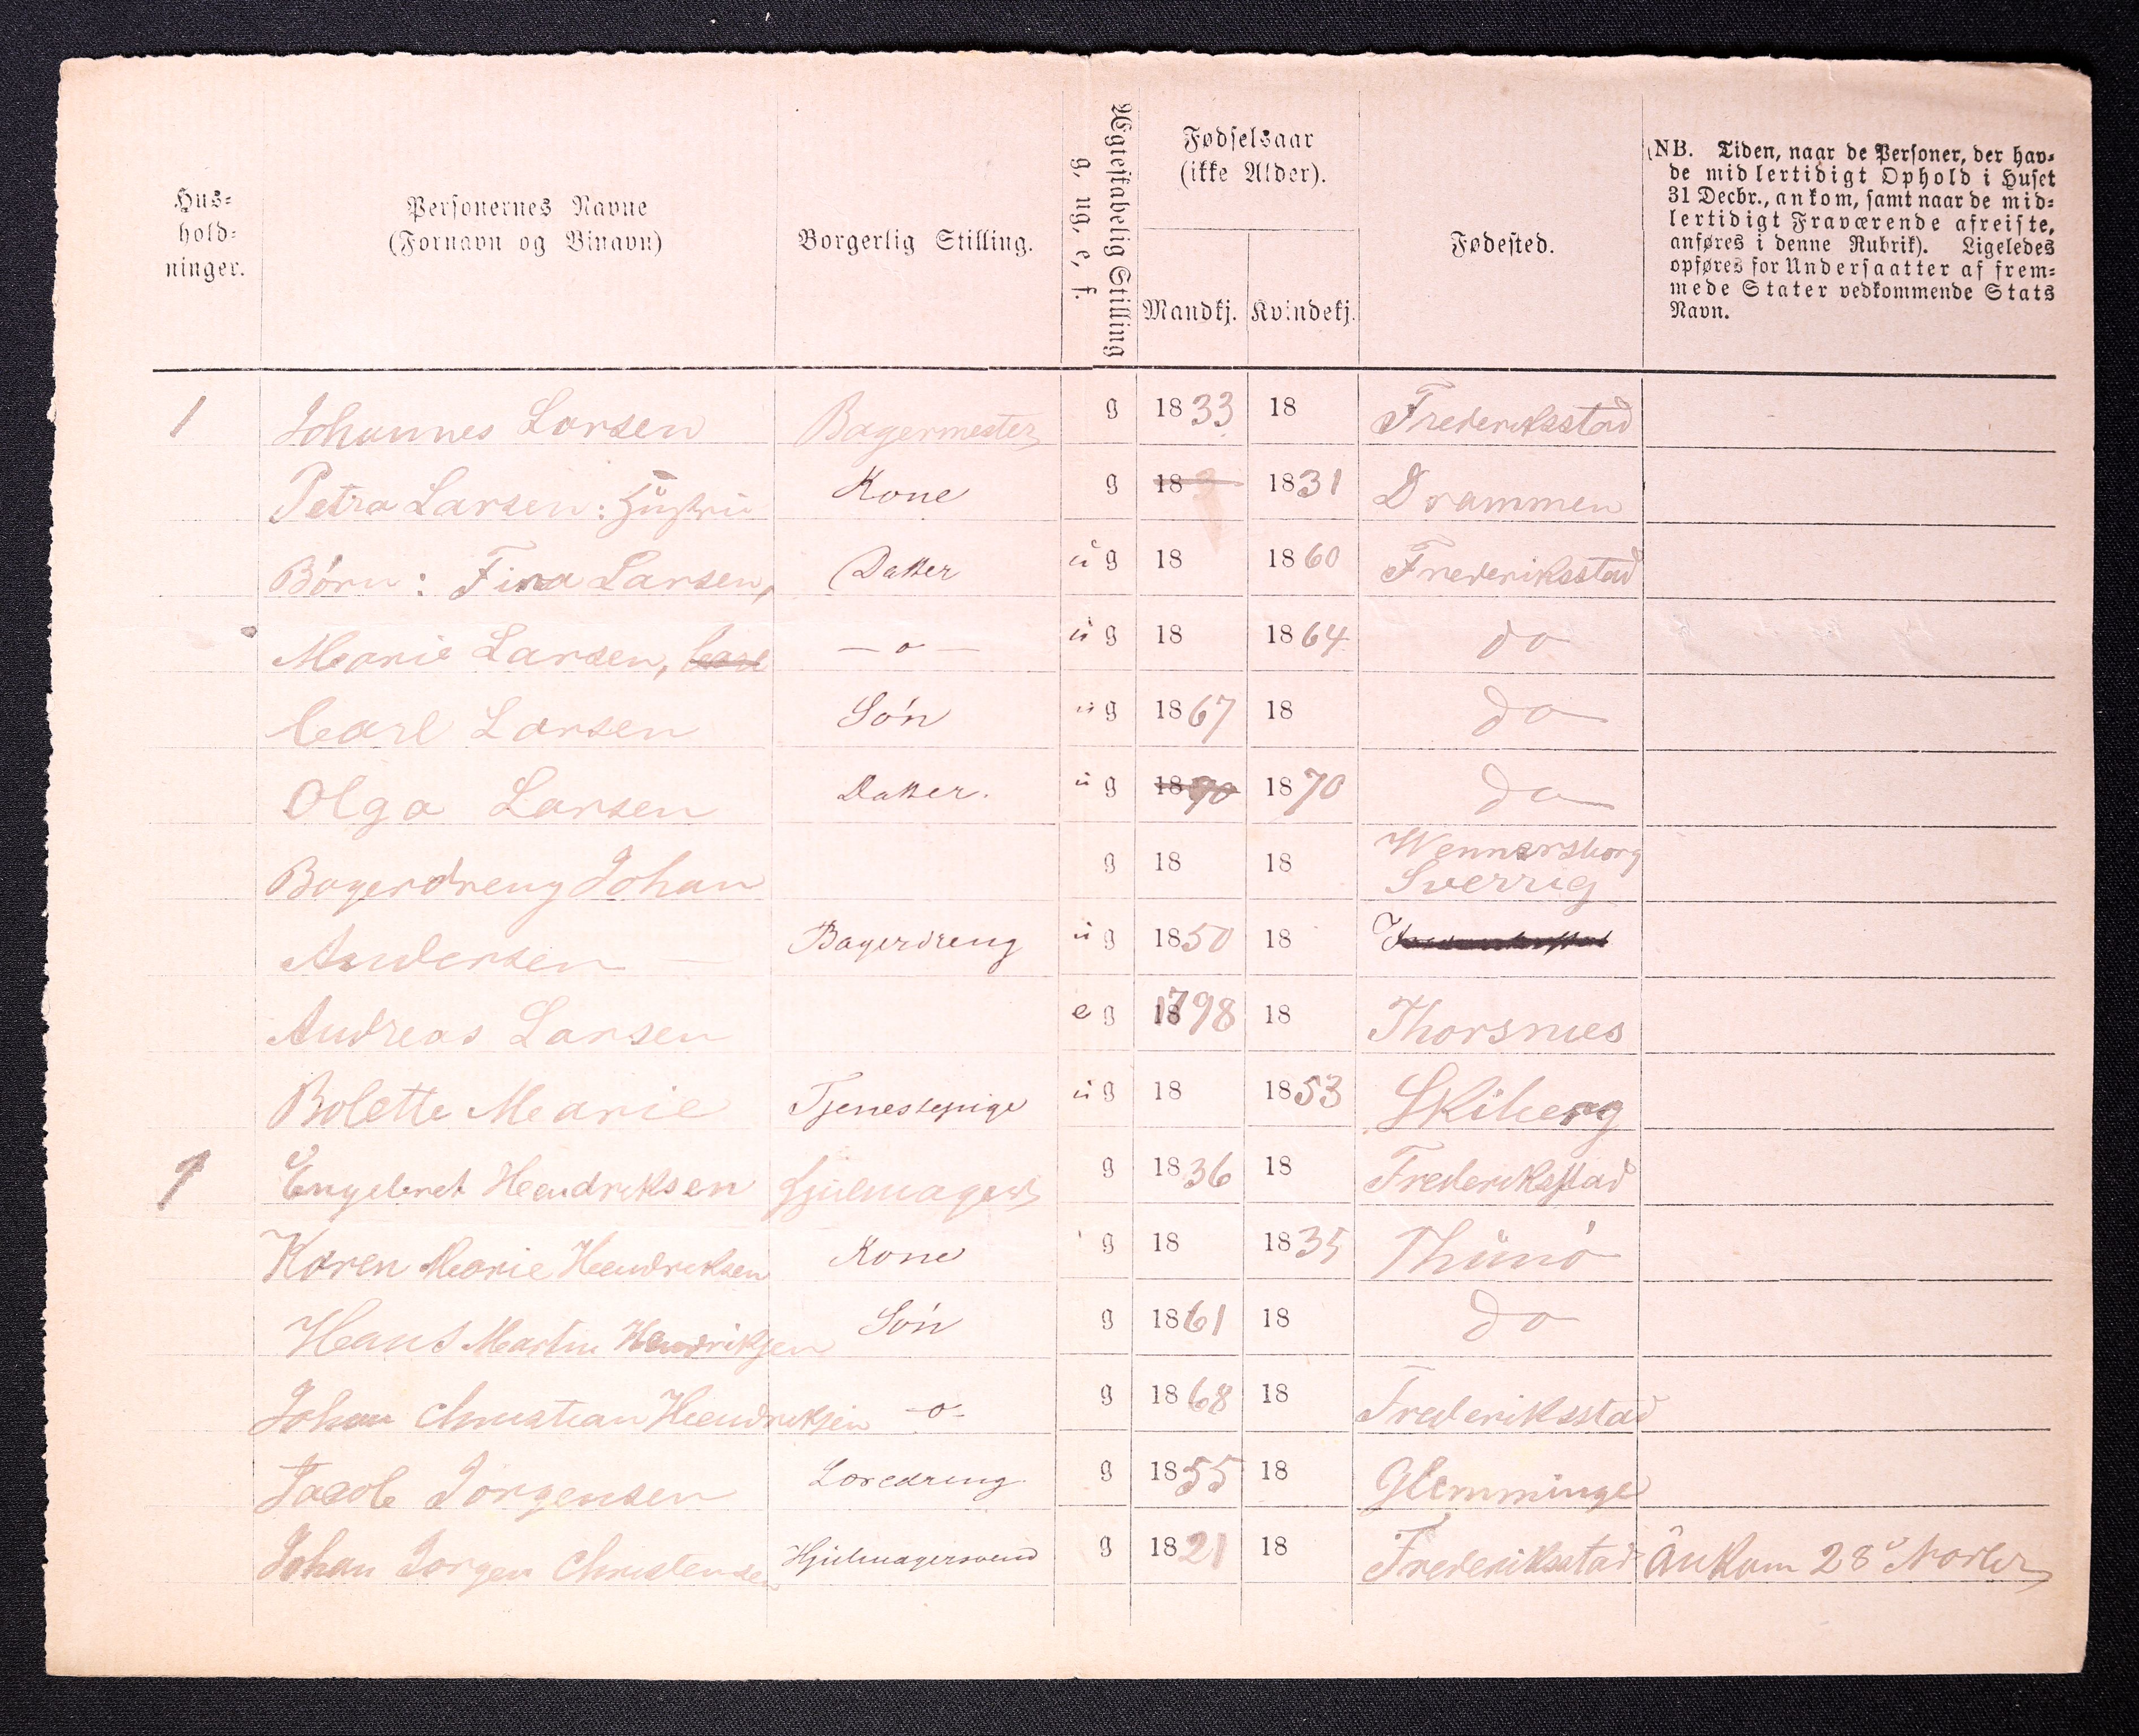 Hus-
hold-
ninger.
Personernes Navne
(Fornavn og Binavn)
Borgerlig Stilling.
Ægteskabelig Stilling
g, ug, e, f.
Fødselsaar
(ikke Alder).
Mandkj. Kvindekj.
Fødested.
(NB. Tiden, naar de Personer, der hav-
de midlertidigt Ophold i Huset
31 Decbr., ankom, samt naar de mid-
lertidigt Fraværende afreiste,
anføres i denne Rubrik). Ligeledes
opføres for Undersaatter af frem-
mede Stater vedkommende Stats
Navn.
1 Johannes Larsen Bagermester g 1833 18 Frederiksstad
Petra Larsen: Hustru Kone g 183 1831 Drammen
Børn: Fina Larsen, Datter ug 18 1860 Frederiksstad
Marie Larsen, Carl — o — ug 18 1864 do
Carl Larsen Søn ug 1867 18 do
Olga Larsen Datter. ug 1870 1870 do
Bagerdreng Johan g 18 18 Wennersborg
Sverrig
Andersen — Bagerdreng ug 1850 18
Andreas Larsen eg 1798 18 Thorsnes
Bolette Marie Tjenestepige ug 18 1853 Skiberg
1 Engebret Hendriksen Hjulmager g 1836 18 Frederiksstad
Karen Marie Hendriksen Kone g 18 1835 Thunø
Hans Martin Hendriksen Søn g 1861 18 do
Johan Christian Hendriksen -o- g 1868 18 Frederiksstad
Jacob Jørgensen Loredreng g 1855 18 Glemminge
Johan Jørgen Christensen Hjulmagersvend g 1821 18 Frederiksstad Ankom 28 Novbr